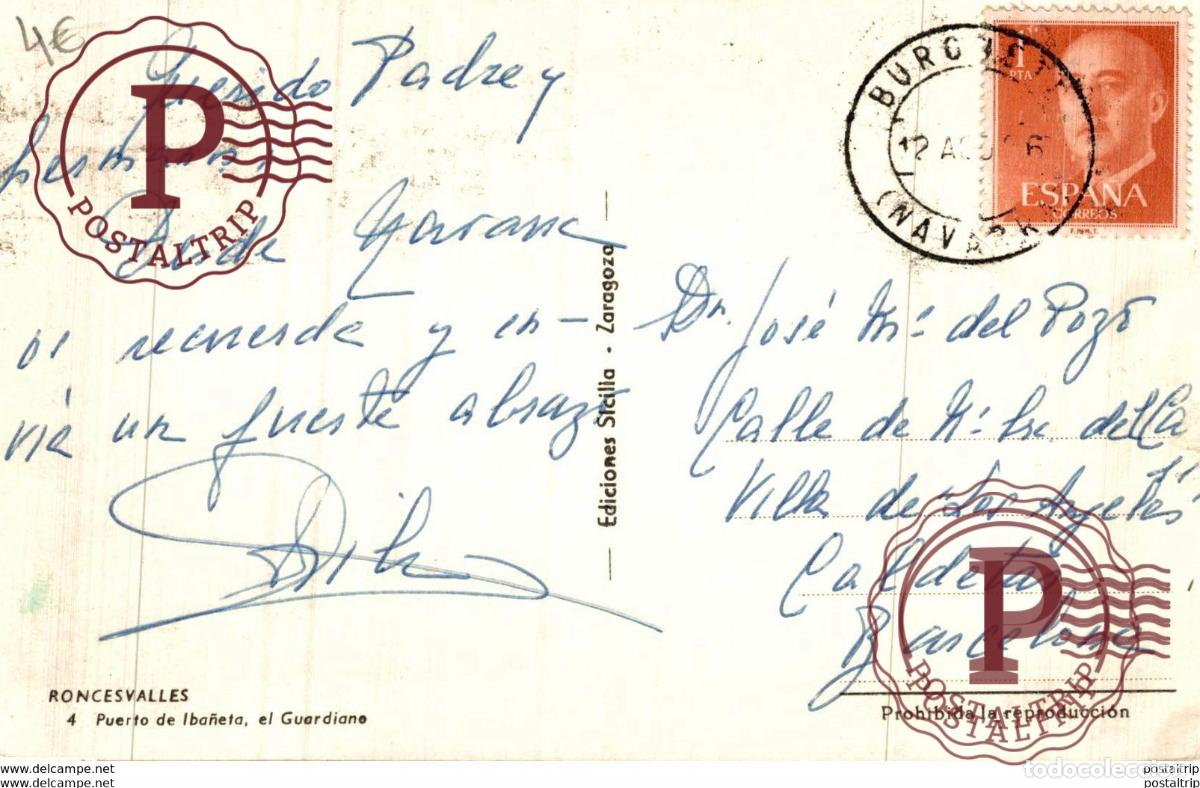 4€
Querido Padre y
hermanos,
Desde Navarra
os recuerda y en-
via un fuerte abrazo
RONCESVALLES
4 Puerto de Ibañeta, el Guardiano
Ediciones Sicilia - Zaragoza
BURGUETE
12 AGO 6
(NAVARRA
1
PTA
ESPAÑA
CORREOS
F.N.M.T.
Dn. José Mª del Pozo
Calle de
Villa de Los Angeles
Caldetas
Barcelona
Prohibida la reproducción
P
POSTALTRIP
P
POSTALTRIP
todocoleccion
www.todocoleccion.net
www.todocoleccion.net
postaltrip
postaltrip